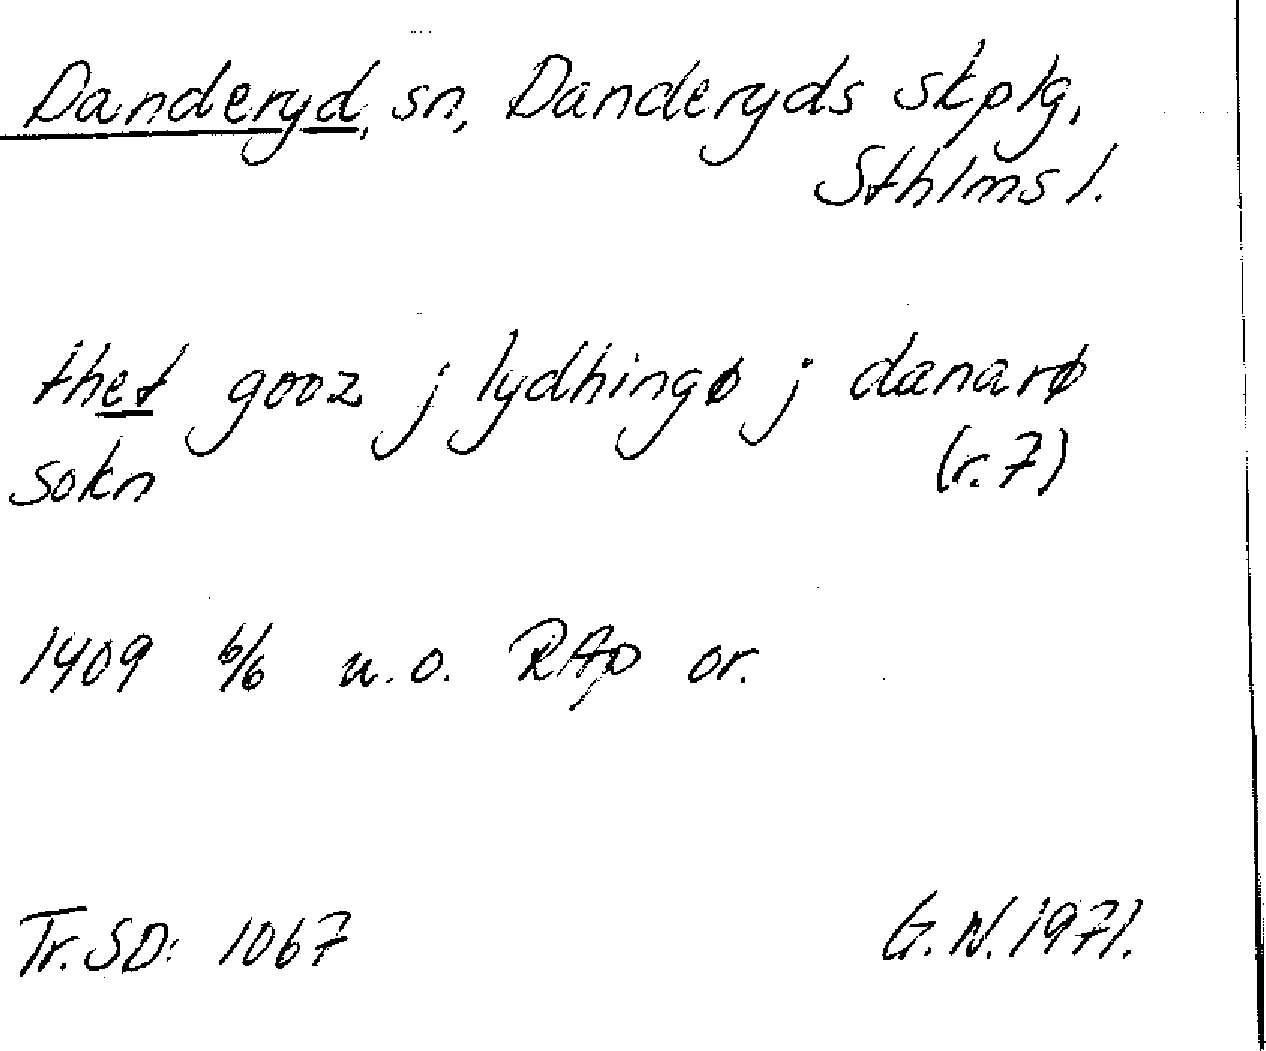 Danderyd, sn, Danderyds skplg,
Sthlms l.
thet gooz j lydhingø j danarø
sokn (r. 7)
1409 6/6 u.o. RAp or.
Tr. SD: 1067 G.N. 1971.